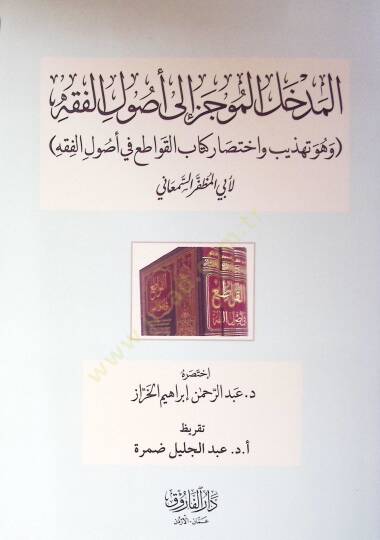 المَدْخَل المُوجَز إلى أصُولِ الفِقهِ
(وَهُوَ تهذيب واختصَار كِتَاب القَواطِع في أصُولِ الفِقهِ)
لأبي المُظفَّر السَّمعَاني
القواطع
في أصول الفقه
اختصَرهُ
د. عَبد الرّحمٰن إبراهيم الخَرّاز
تقريظ
أ.د. عبد الجليل ضمرة
دَارُ الفَارُوق
عـمّـان - الأردن